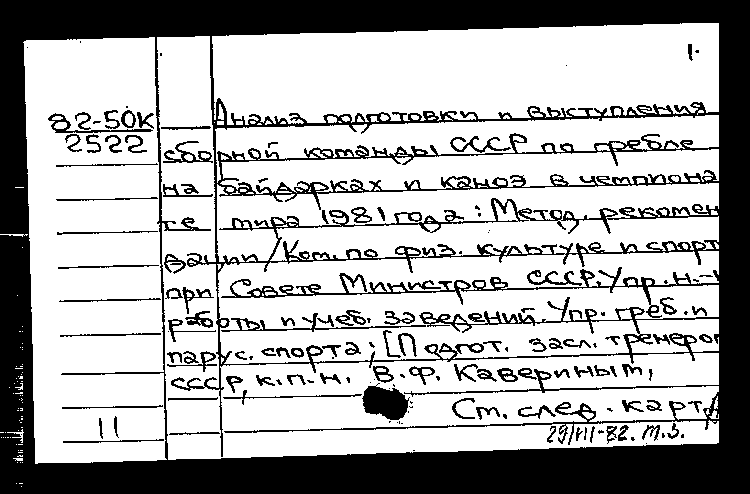 1.
82-50К
2522
Анализ подготовки и выступления
сборной команды СССР по гребле
на байдарках и каноэ в чемпиона
те мира 1981 года: Метод. рекомен
дации/Ком. по физ. культуре и спорт
при Совете Министров СССР. Упр. н.-
работы и учеб. заведений. Упр. греб. и
парус. спорта; [Подгот. засл. тренеро
СССР, к.п.н. В.Ф. Кавериным,
См. след. карт
11
29/VII-82. т.з.